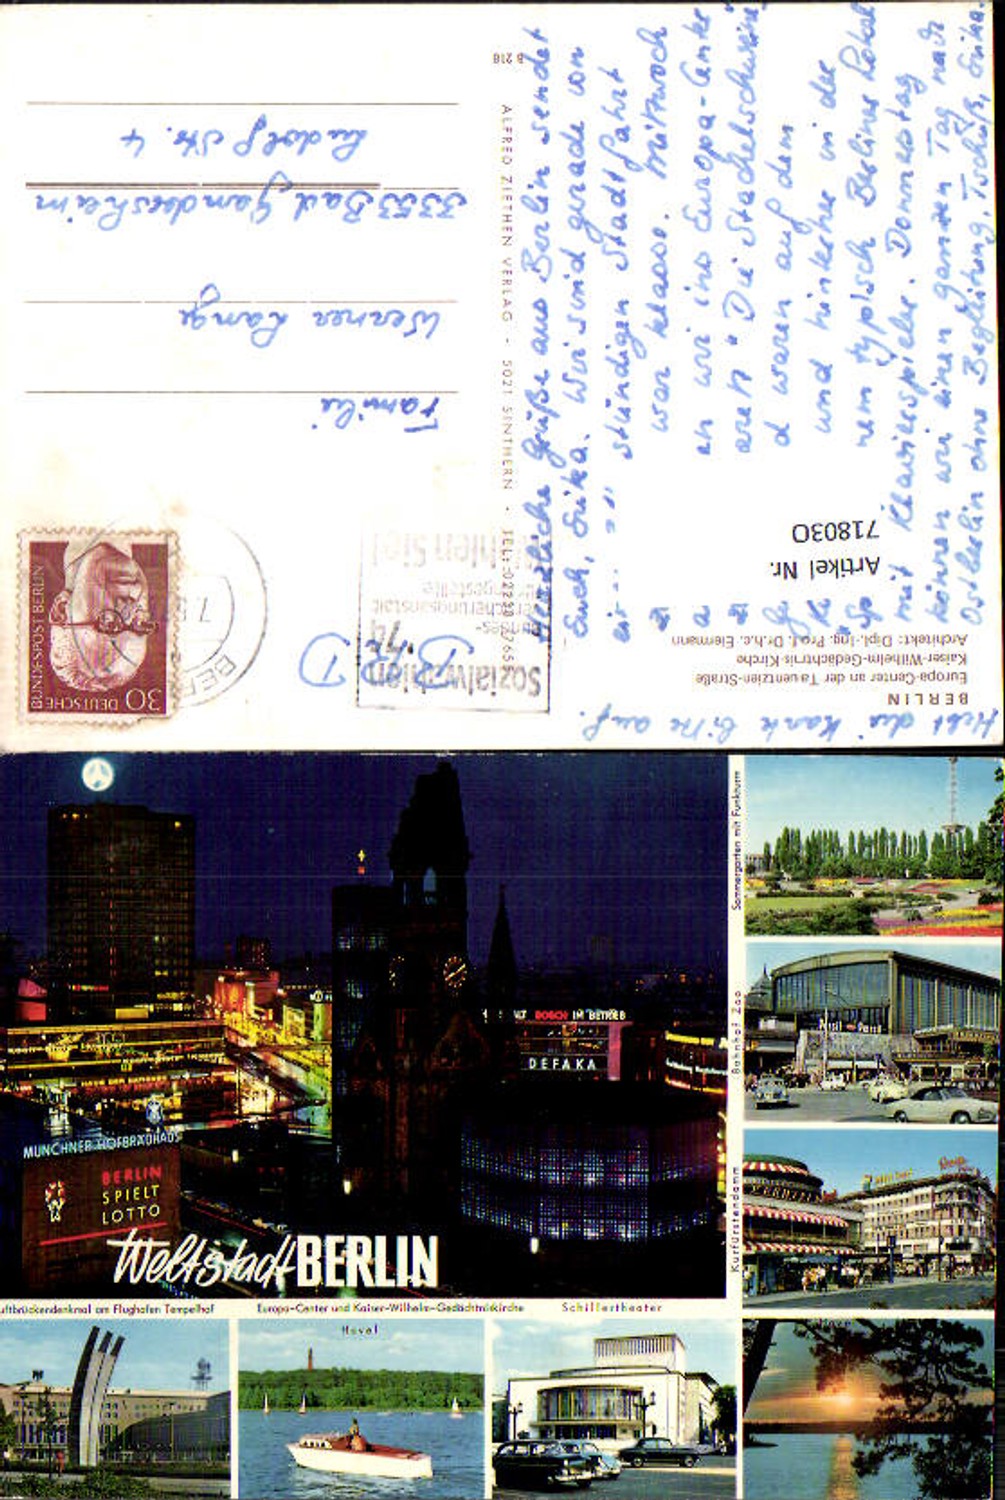 Herzliche Grüße aus Berlin sendet
Euch, Erika. Wir sind gerade von
stündigen Stadtfahrt
war klasse. Mittwoch
en wir ins Europa-Center
"Die Stachelschweine"
d waren auf dem
und hinterher in der
nem typisch Berliner Lokal
mit Klavierspieler. Donnerstag
können wir einen ganzen Tag nach
Ostberlin ohne Begleitung. Tschüß, Erika.
Hebt die Karte bitte auf.
BERLIN
Europa-Center an der Tauentzien-Straße
Kaiser-Wilhelm-Gedächtnis-Kirche
Architekt: Dipl.-Ing. Prof. Dr.h.c. Eiermann
Artikel Nr.
718030
ALFRED ZIETHEN VERLAG · 5021 SINTHERN
B 218
Sozialwahlen
'74
Bundes-
versicherungsanstalt
für Angestellte
Wählen Sie!
BER
DEUTSCHE
BUNDESPOST BERLIN
30
Familie
Werner Lange
3353 Bad Gandersheim
Ludolf Str. 4
MÜNCHNER HOFBRÄUHAUS
BERLIN
SPIELT
LOTTO
BOSCH IM BETRIEB
DEFAKA
Weltstadt BERLIN
Sommergarten mit Funkturm
Bahnhof Zoo
Kurfürstendamm
uftbrückendenkmal am Flughafen Tempelhof
Europa-Center und Kaiser-Wilhelm-Gedächtniskirche
Schillertheater
Havel